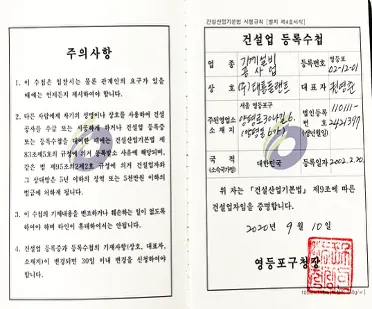 주의사항
1. 이 수첩은 입찰시는 물론 관계인의 요구가 있을
때에는 언제든지 제시하여야 합니다.
2. 다른 사람에게 자기의 성명이나 상호를 사용하여 건설
공사를 수급 또는 시공하게 하거나 건설업 등록증
또는 등록수첩을 대여한 때에는 건설산업기본법 제
83조제5호의 규정에 의거 등록말소 사유에 해당되며,
같은 법 제95조의2제2호 규정에 의거 건설업자와
그 상대방은 5년 이하의 징역 또는 5천만원 이하의
벌금에 처하게 됩니다.
3. 이 수첩의 기재내용을 변조하거나 훼손하는 일이 없도록
하여야 하며 타인이 휴대하여서는 안됩니다.
4. 건설업 등록증과 등록수첩의 기재사항(상호, 대표자,
소재지)이 변경되면 30일 이내 변경을 신청하여야
합니다.
건설산업기본법 시행규칙 [별지 제4호서식]
건설업 등록수첩
업 종 기계설비공사업 등록번호 영등포 02-12-01
상 호 (주)대륭플랜트 대 표 자
주된영업소 소재지 서울 영등포구 법인등록번호 110111-2421397
(생년월일)
국 적 (소속국가명) 대한민국 등록일자 2002.2.20.
위 자는 「건설산업기본법」 제9조에 따른
건설업자임을 증명합니다.
2020 년 9 월 10 일
영등포구청장